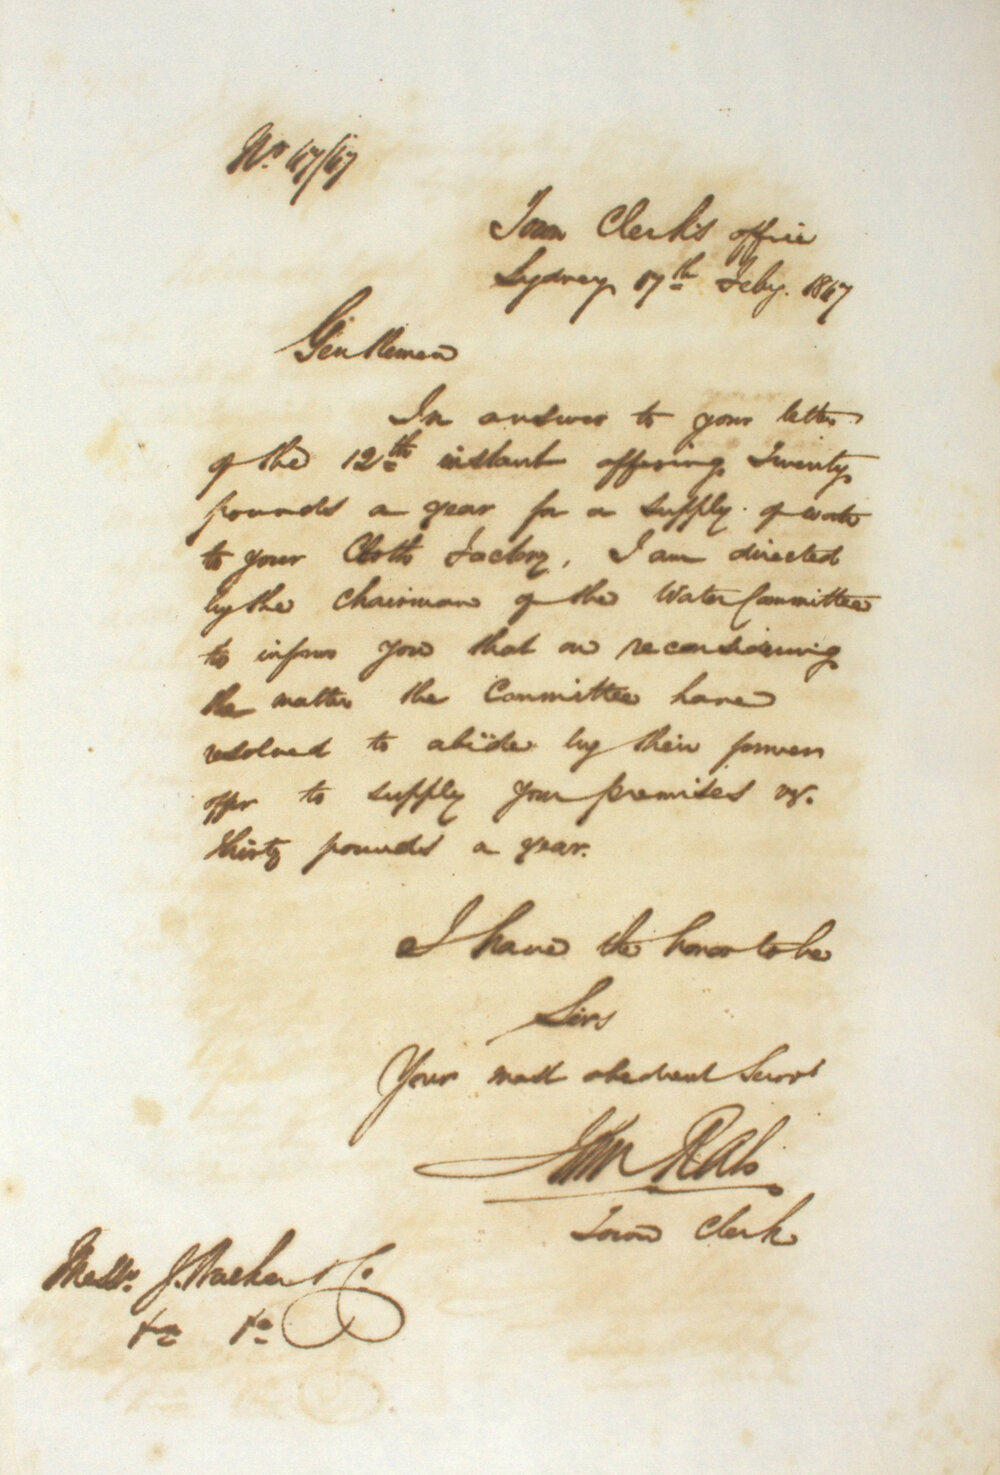 No. 47/47
Town Clerk's office
Sydney 17th Feby. 1847
Gentlemen
In answer to your letter
of the 12th instant offering Twenty
pounds a year for a supply of water
to your Cloth Factory, I am directed
by the Chairman of the Water Committee
to inform you that on reconsidering
the matter the Committee have
resolved to abide by their former
offer to supply your premises
thirty pounds a year.
I have the honor to be
Sirs
Your most obedient Servt
John Rae
Town Clerk
Messrs. J. & Co.
&c &c